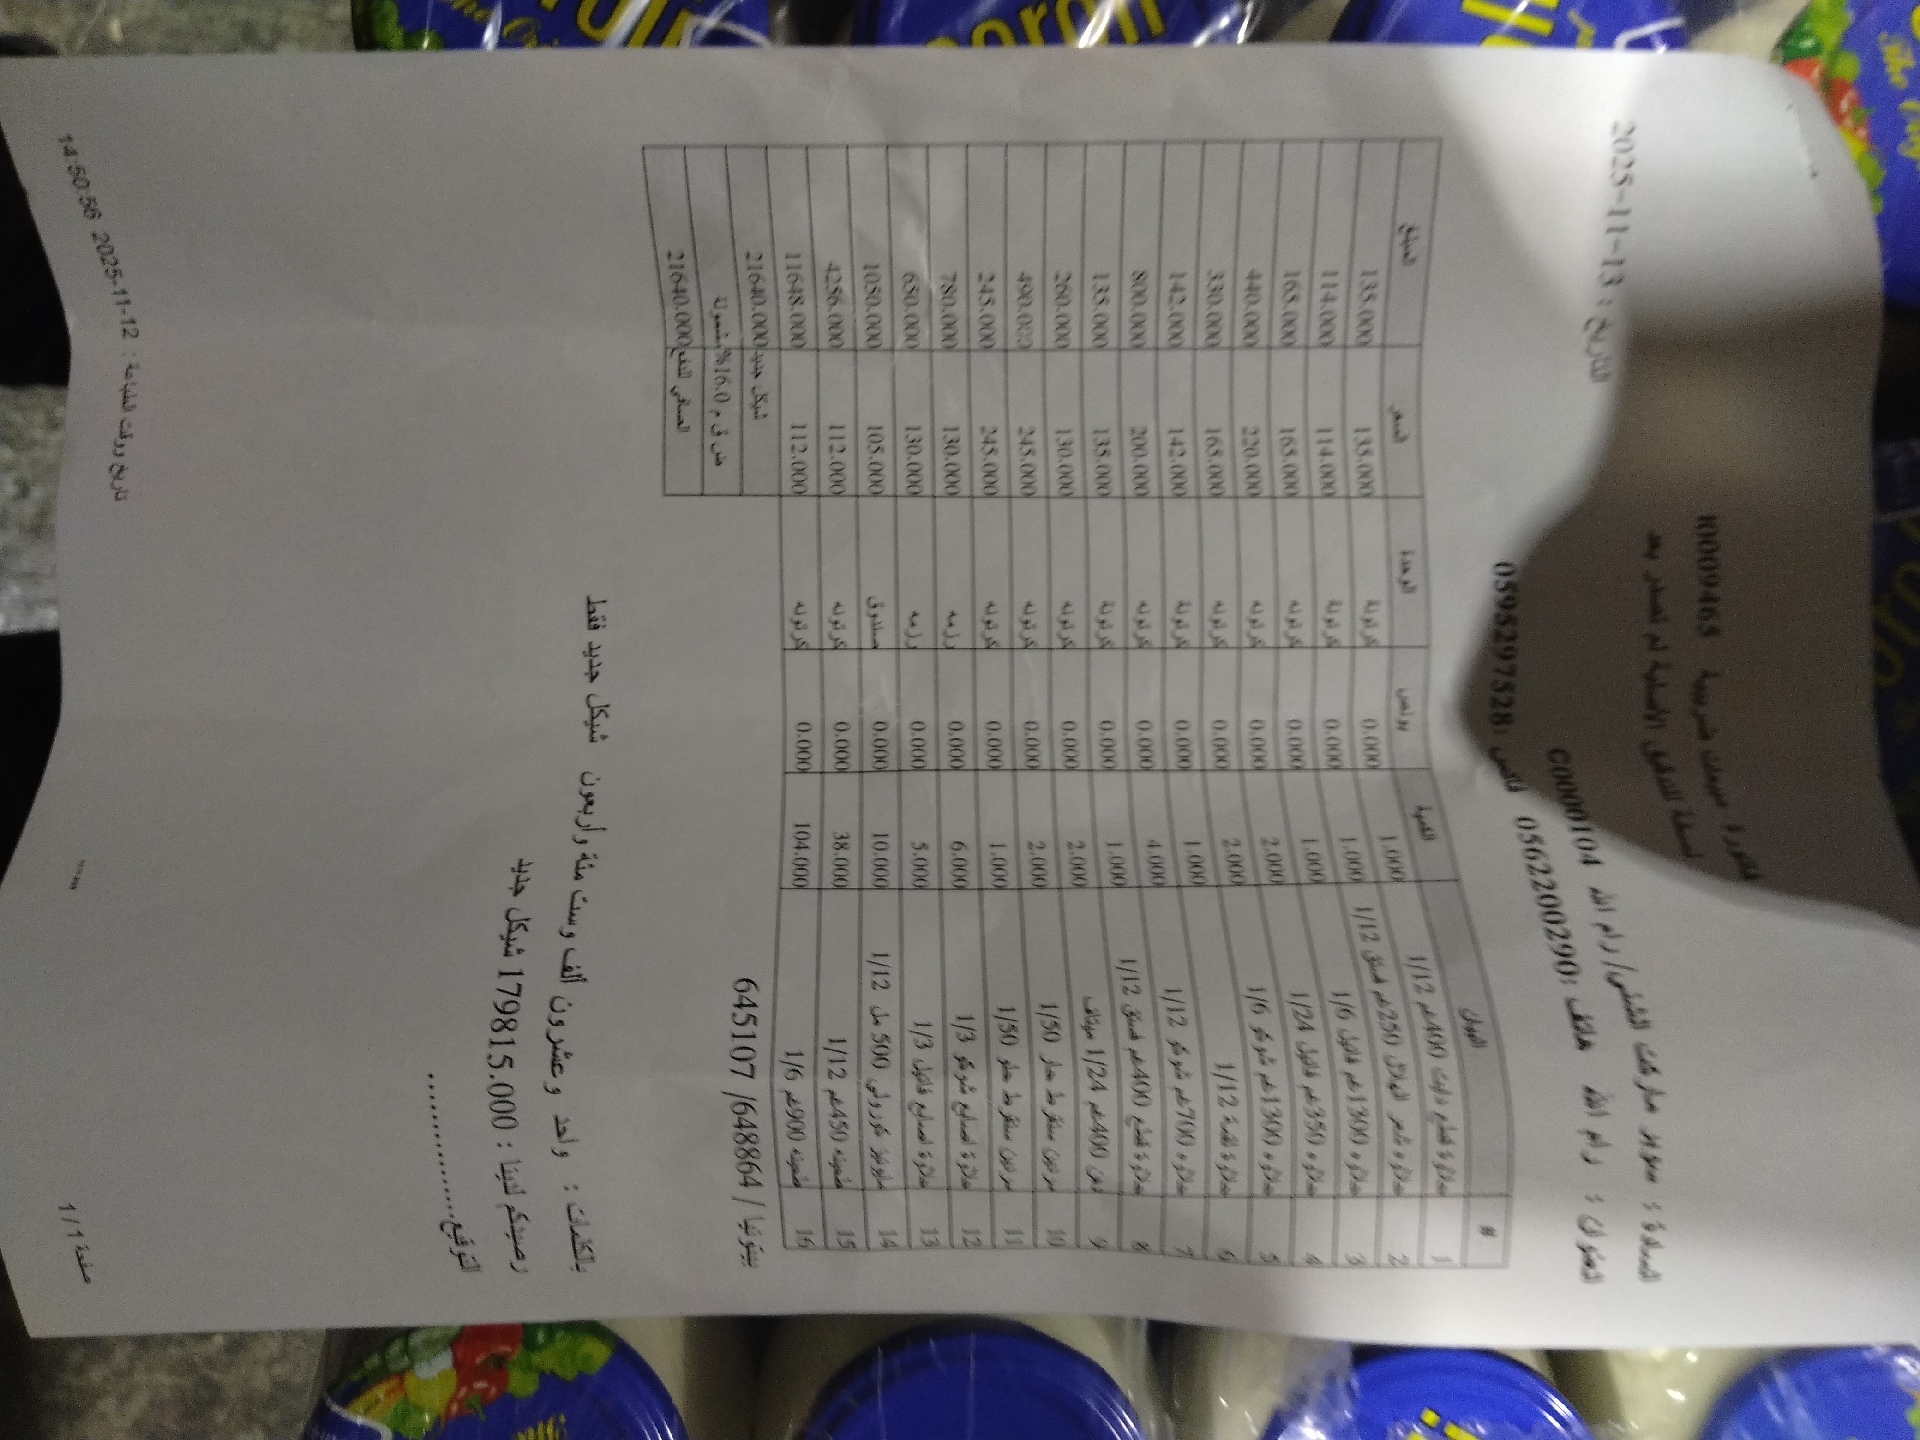 فاتورة مبيعات ضريبية I0009465
نسخة للتدقيق الأصلية لم تصدر بعد
التاريخ : 13-11-2025
السادة : سوبر ماركت الشني/رام الله C0000104
العنوان : رام الله هاتف :0562200290 فاكس :0595297528
# البيان الكمية بونص الوحدة السعر المبلغ
1 حلاوة قطع دايت 400غم 1/12 1.000 0.000 كرتونة 135.000 135.000
2 حلاوه شعر 250غم فستق 1/12 1.000 0.000 كرتونة 114.000 114.000
3 حلاوه 1300غم فانيل 1/6 1.000 0.000 كرتونه 165.000 165.000
4 حلاوه 350غم فانيل 1/24 2.000 0.000 كرتونه 220.000 440.000
5 حلاوه 1300غم شوكو 1/6 2.000 0.000 كرتونه 165.000 330.000
6 حلاوة 1/12 1.000 0.000 كرتونة 142.000 142.000
7 حلاوه 700غم شوكو 1/12 4.000 0.000 كرتونه 200.000 800.000
8 حلاوة قطع 400غم فستق 1/12 1.000 0.000 كرتونة 135.000 135.000
9 400غم 1/24 2.000 0.000 كرتونه 130.000 260.000
10 حار 1/50 2.000 0.000 كرتونه 245.000 490.000
11 حلو 1/50 1.000 0.000 كرتونه 245.000 245.000
12 حلاوة اصابع شوكو 1/3 6.000 0.000 رزمه 130.000 780.000
13 حلاوة اصابع فانيل 1/3 5.000 0.000 رزمه 130.000 650.000
14 مايونيز نورولي 500 مل 1/12 10.000 0.000 صندوق 105.000 1050.000
15 طحينه 450غم 1/12 38.000 0.000 كرتونه 112.000 4256.000
16 طحينه 900غم 1/6 104.000 0.000 كرتونه 112.000 11648.000
بيتونيا / 648864/ 645107
شيكل جديد 21640.000
ض ق م 16.0% مشمولة
الصافي للدفع 21640.000
بالكلمات : واحد وعشرون ألف وست مئة وأربعون شيكل جديد فقط
رصيدكم لدينا : 179815.000 شيكل جديد
التوقيع....................
صفحة 1/1
تاريخ ووقت الطباعة : 12-11-2025 14:50:56